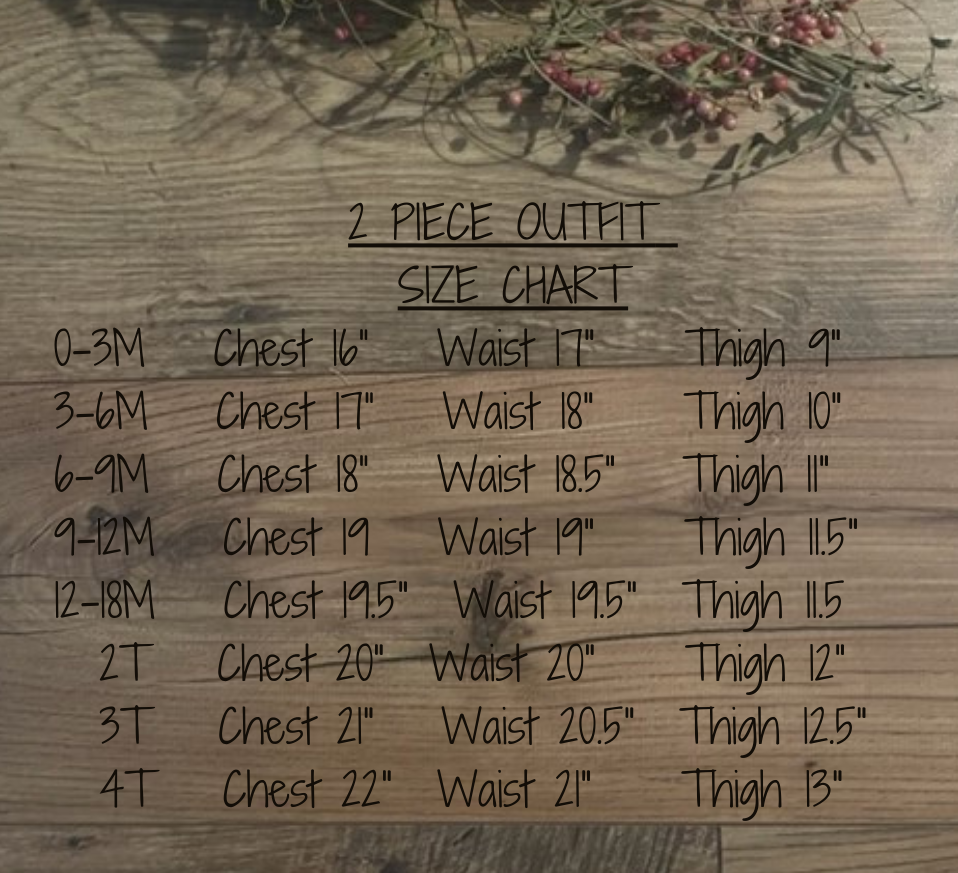 2 PIECE OUTFIT
SIZE CHART
0-3M Chest 16" Waist 17" Thigh 9"
3-6M Chest 17" Waist 18" Thigh 10"
6-9M Chest 18" Waist 18.5" Thigh 11"
9-12M Chest 19 Waist 19" Thigh 11.5"
12-18M Chest 19.5" Waist 19.5" Thigh 11.5
2T Chest 20" Waist 20" Thigh 12"
3T Chest 21" Waist 20.5" Thigh 12.5"
4T Chest 22" Waist 21" Thigh 13"